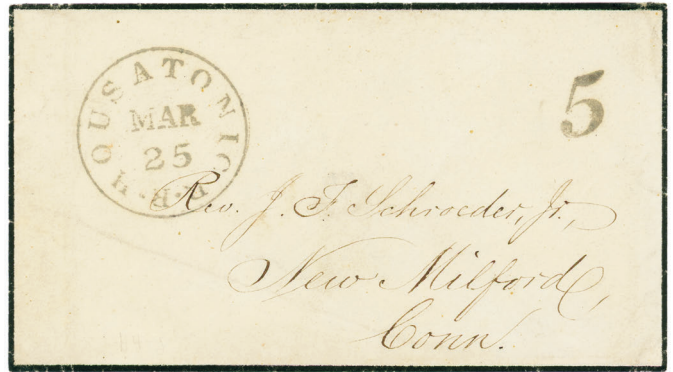 HOUSATONIC R.R.
MAR
25
5
Rev. J. F. Schroeder, Jr.,
New Milford,
Conn.